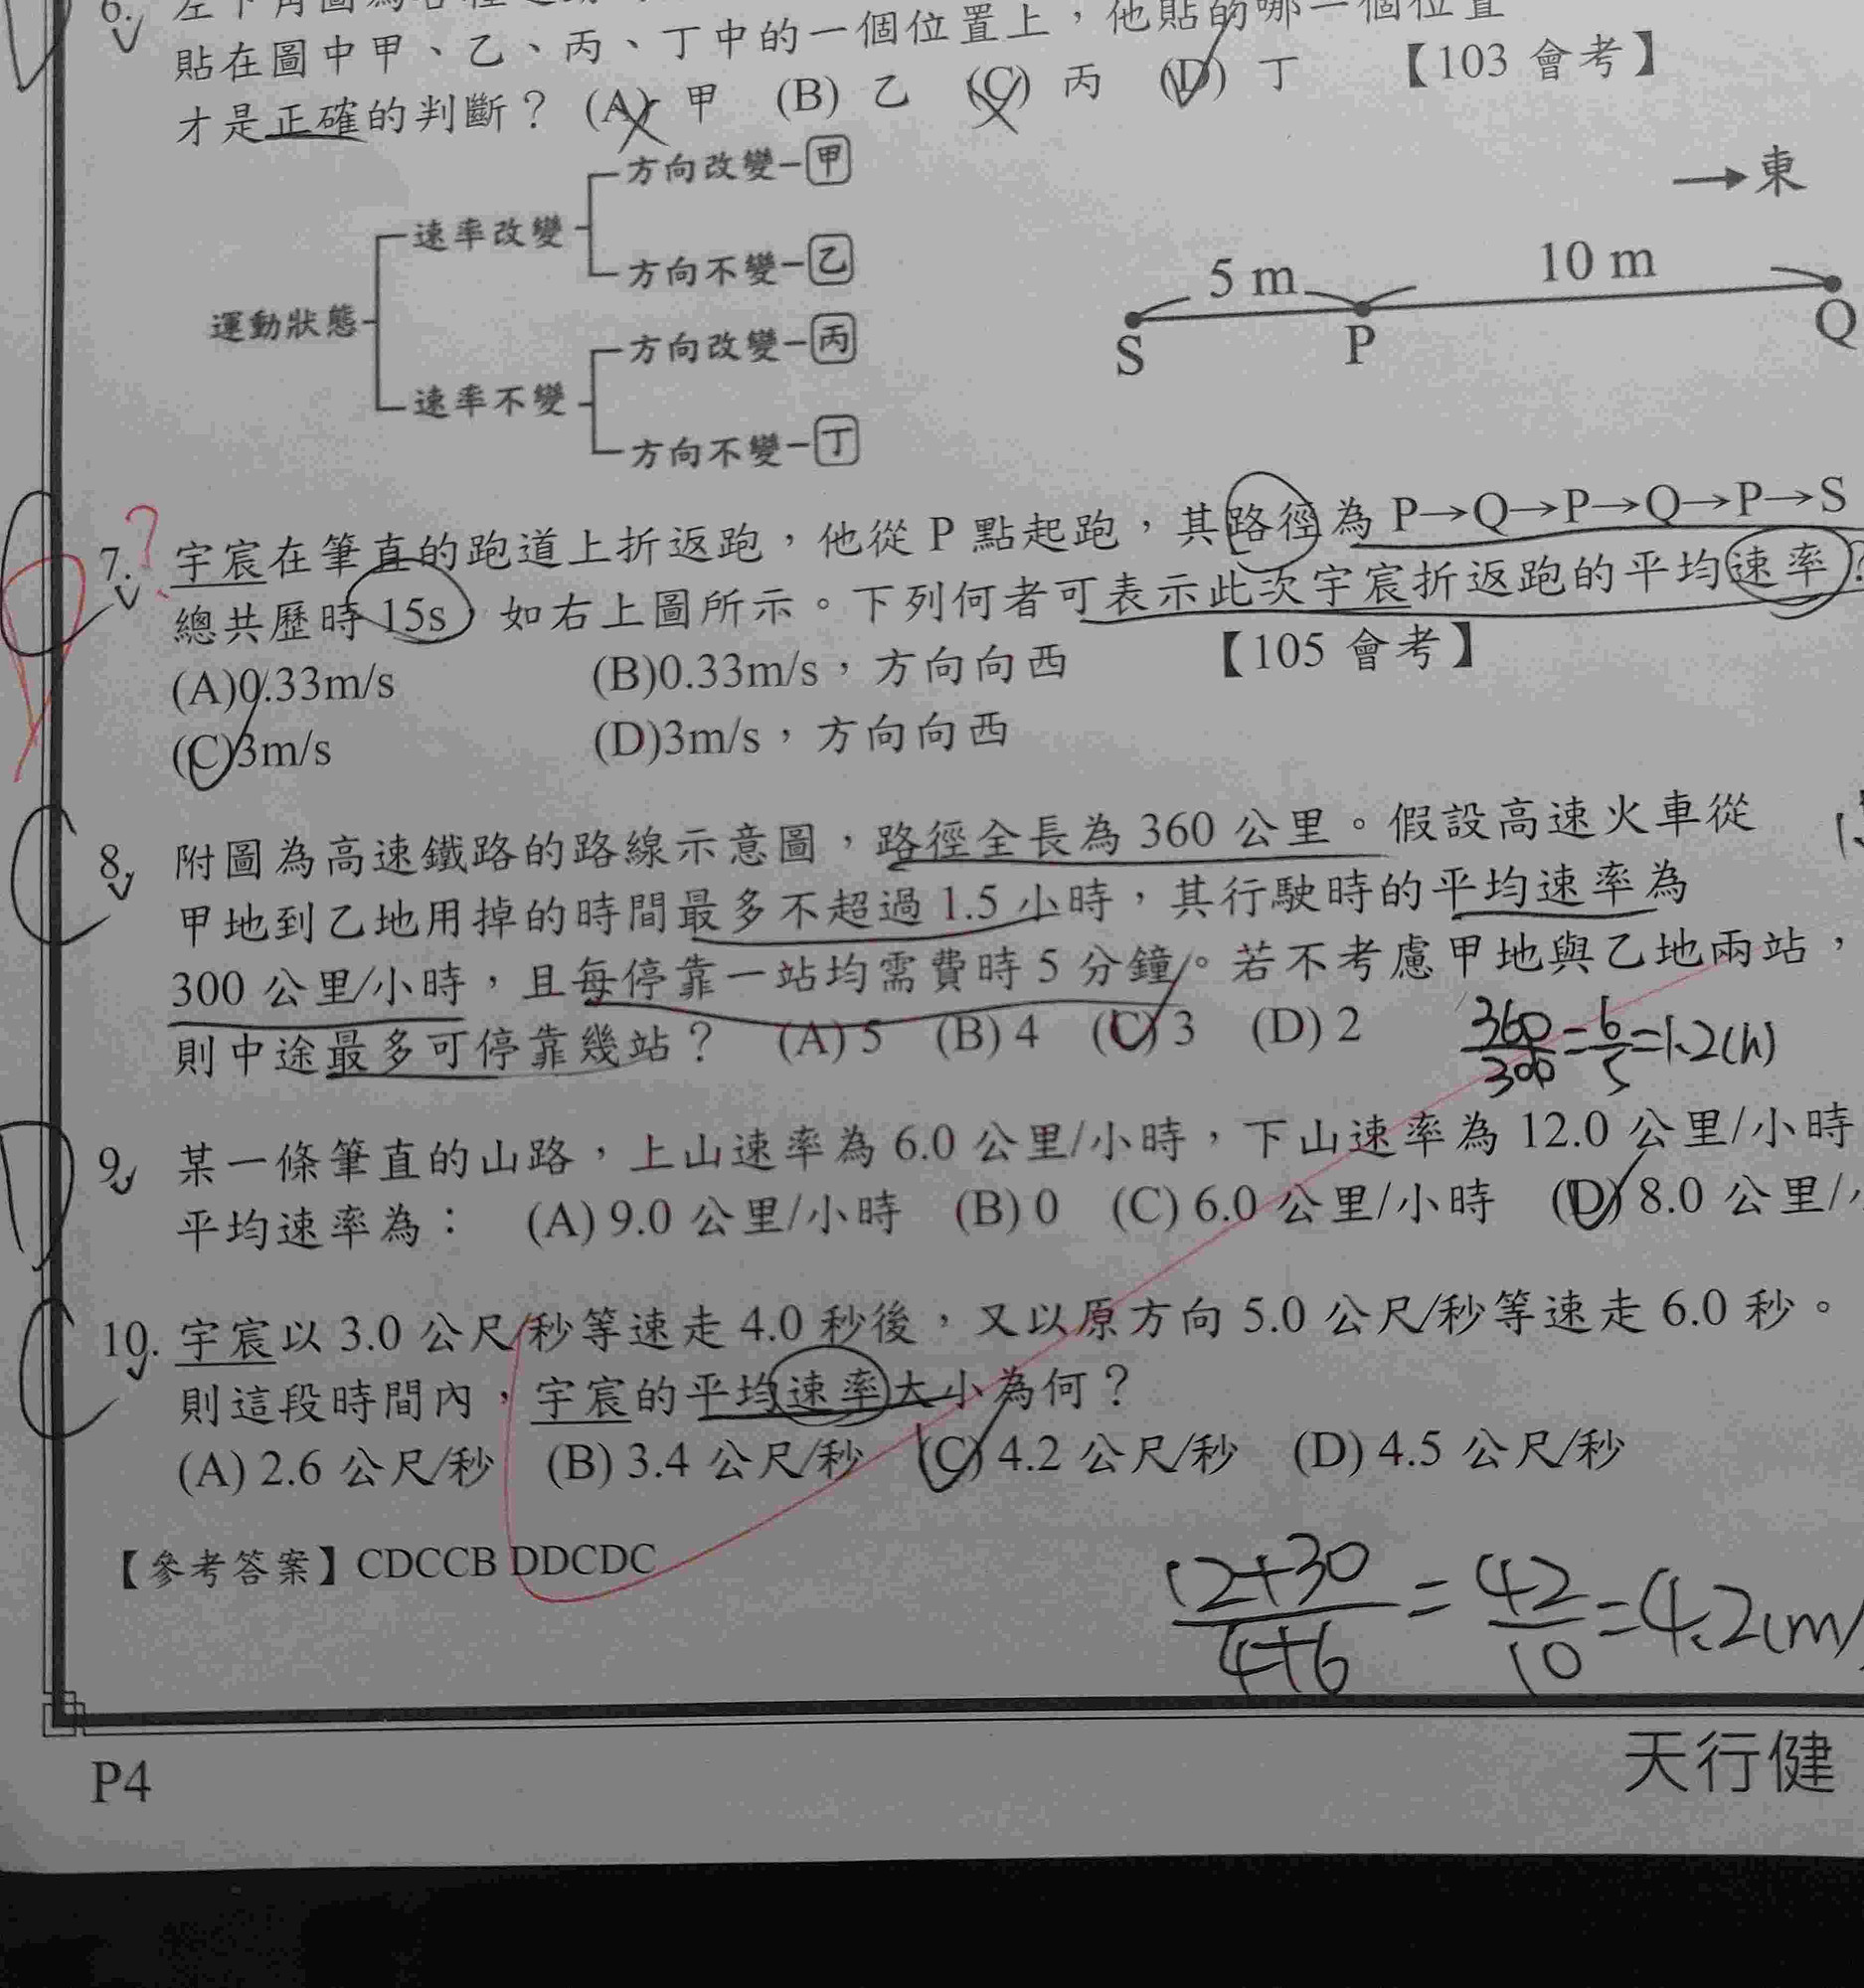 貼在圖中甲、乙、丙、丁中的一個位置上，他貼的哪一個位置
才是正確的判斷？ (A) 甲 (B) 乙 (C) 丙 (D) 丁 【103 會考】
運動狀態
速率改變
方向改變－甲
方向不變－乙
速率不變
方向改變－丙
方向不變－丁
→東
5 m 10 m
S P Q
?
7. 宇宸在筆直的跑道上折返跑，他從 P 點起跑，其路徑為 P→Q→P→Q→P→S
總共歷時 15s，如右上圖所示。下列何者可表示此次宇宸折返跑的平均速率？
(A)0.33m/s (B)0.33m/s，方向向西 【105 會考】
(C)3m/s (D)3m/s，方向向西
8. 附圖為高速鐵路的路線示意圖，路徑全長為 360 公里。假設高速火車從
甲地到乙地用掉的時間最多不超過 1.5 小時，其行駛時的平均速率為
300 公里/小時，且每停靠一站均需費時 5 分鐘。若不考慮甲地與乙地兩站，
則中途最多可停靠幾站？ (A) 5 (B) 4 (C) 3 (D) 2
360/300=6/5=1.2(h)
9. 某一條筆直的山路，上山速率為 6.0 公里/小時，下山速率為 12.0 公里/小時
平均速率為： (A) 9.0 公里/小時 (B) 0 (C) 6.0 公里/小時 (D) 8.0 公里/
10. 宇宸以 3.0 公尺/秒等速走 4.0 秒後，又以原方向 5.0 公尺/秒等速走 6.0 秒。
則這段時間內，宇宸的平均速率大小為何？
(A) 2.6 公尺/秒 (B) 3.4 公尺/秒 (C) 4.2 公尺/秒 (D) 4.5 公尺/秒
【參考答案】CDCCB DDCDC
12+30/4+6=42/10=4.2(m/
P4
天行健